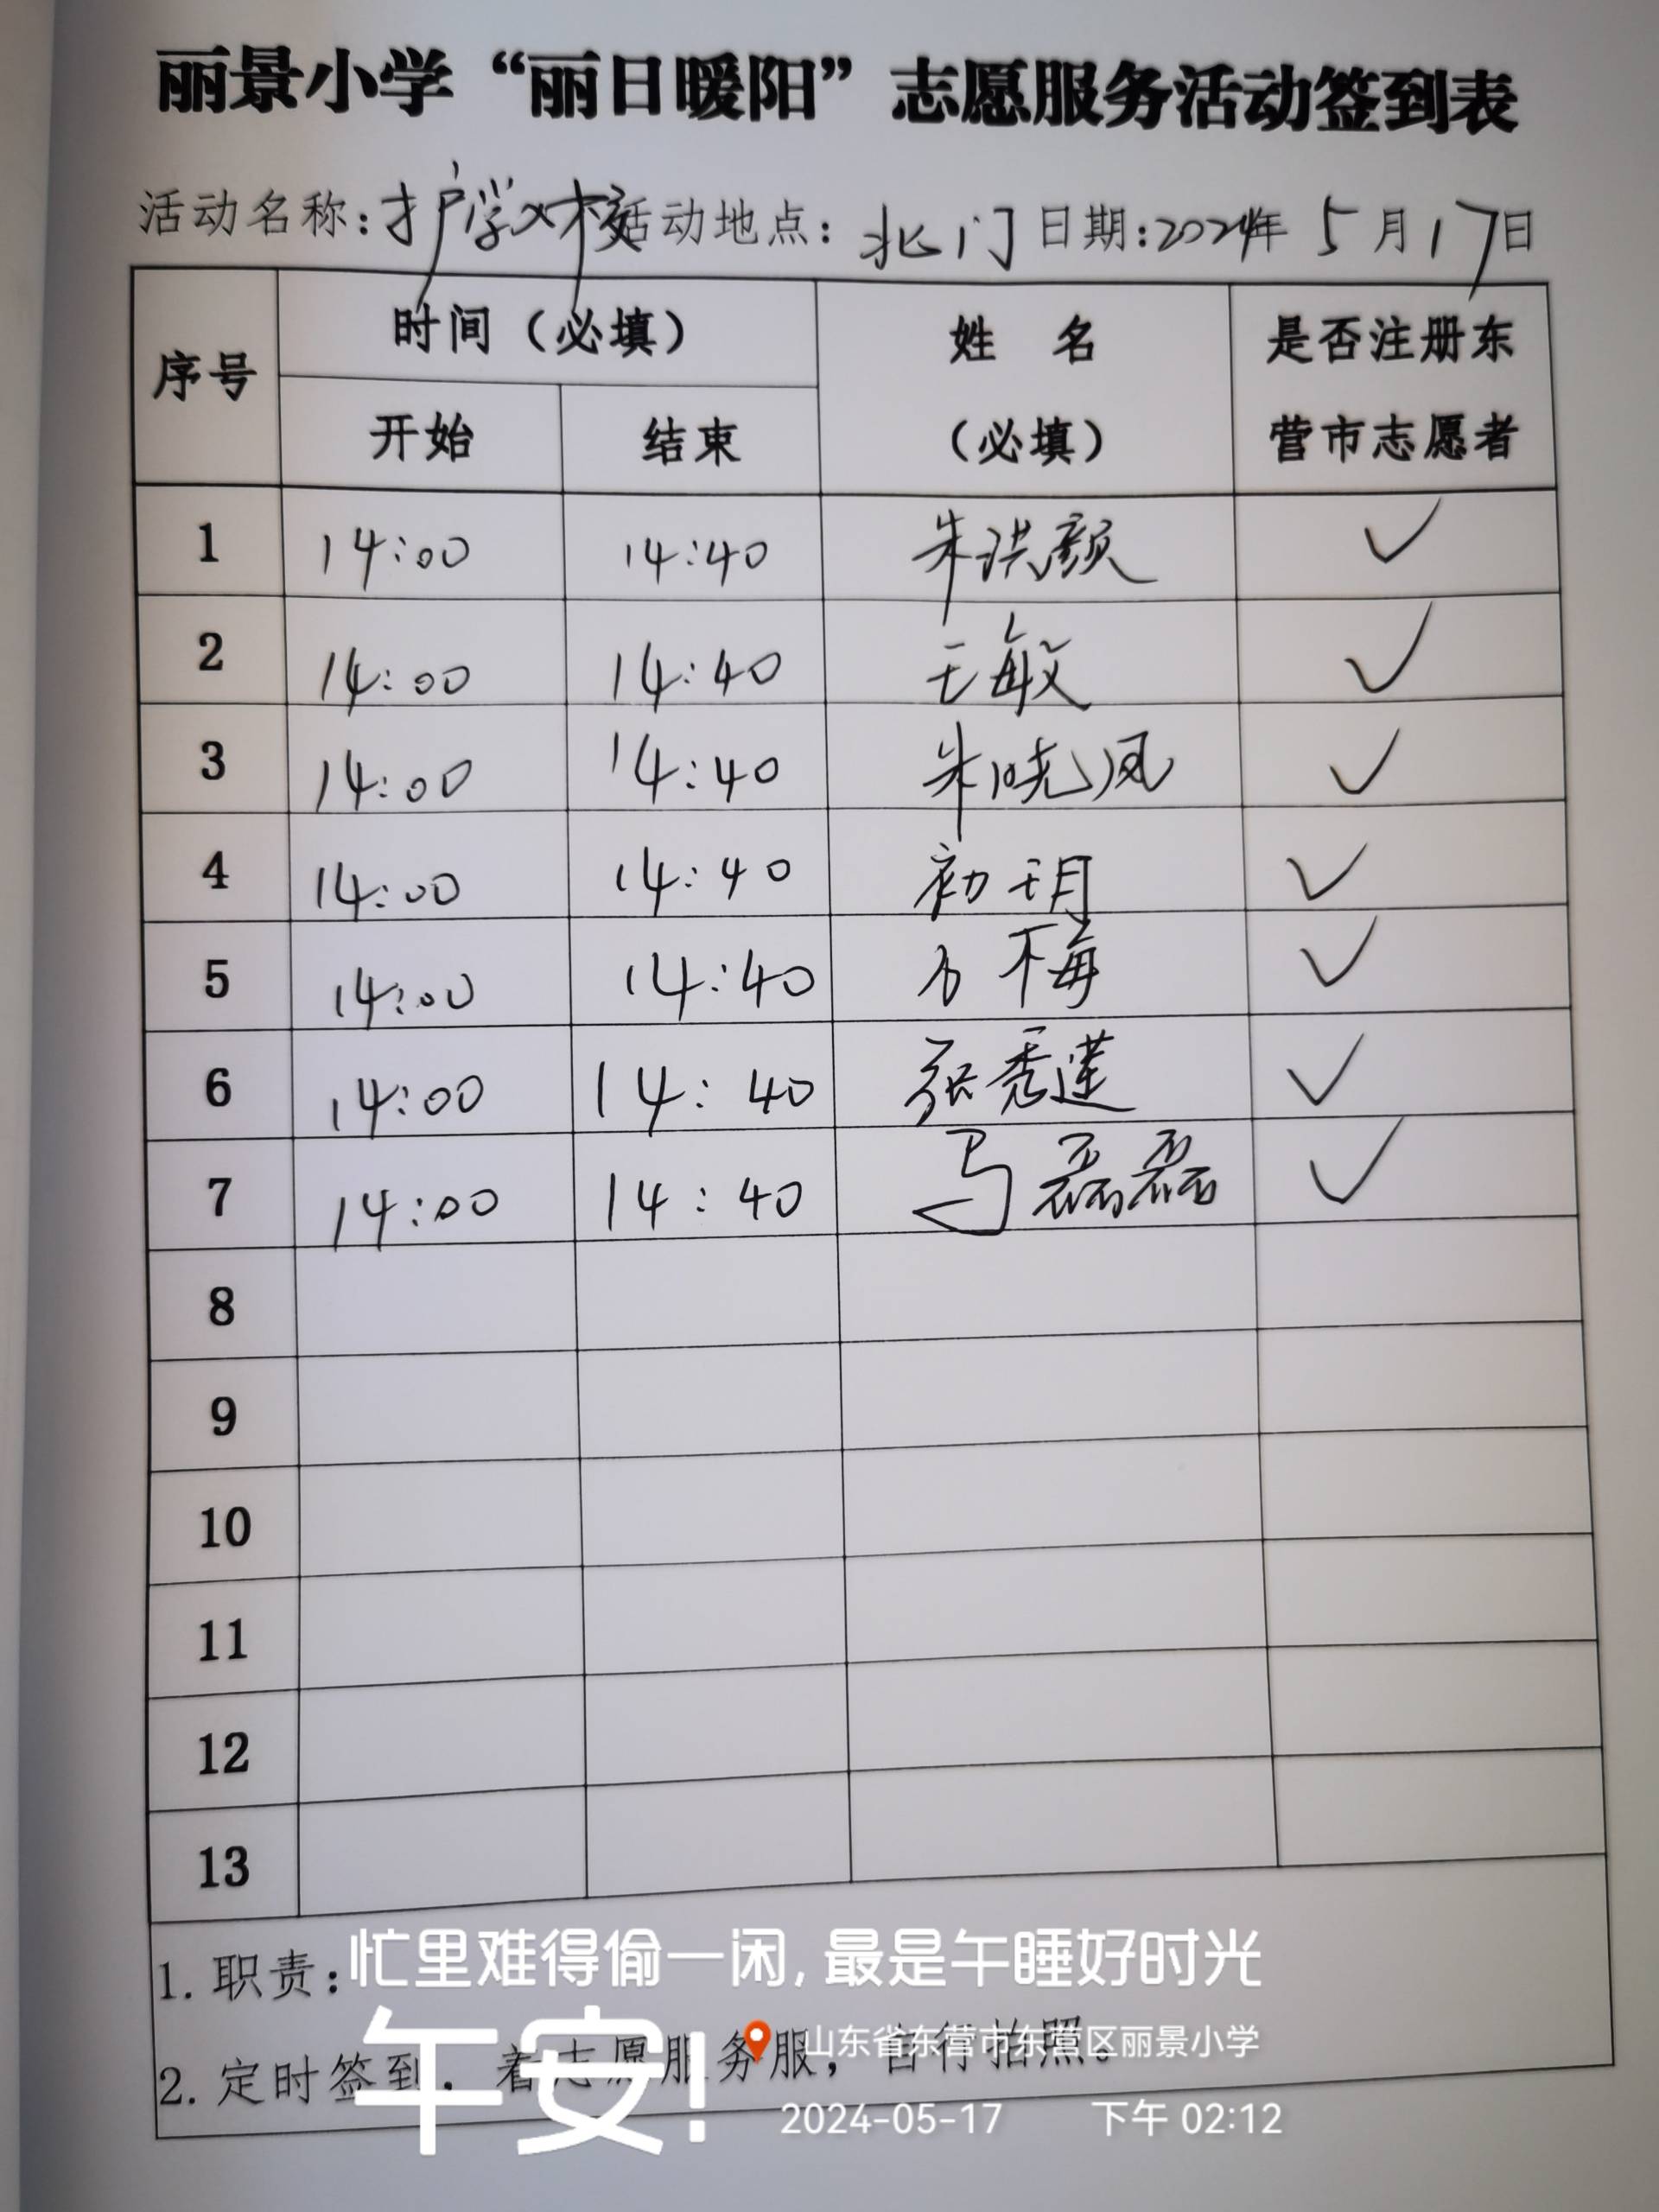 丽景小学“丽日暖阳”志愿服务活动签到表
活动名称:护学 活动地点: 北门 日期:2024年 5月17日
序号 时间(必填) 姓 名(必填) 是否注册东营市志愿者
开始 结束
1 14:00 14:40 朱洪颜 ✓
2 14:00 14:40 王敏 ✓
3 14:00 14:40 朱晓凤 ✓
4 14:00 14:40 初玥 ✓
5 14:00 14:40 方梅 ✓
6 14:00 14:40 张秀莲 ✓
7 14:00 14:40 马磊磊 ✓
8
9
10
11
12
13
1.职责:
忙里难得偷一闲,最是午睡好时光
2.定时签到,着志愿服务服,自行拍照。
午安!
山东省东营市东营区丽景小学
2024-05-17 下午 02:12